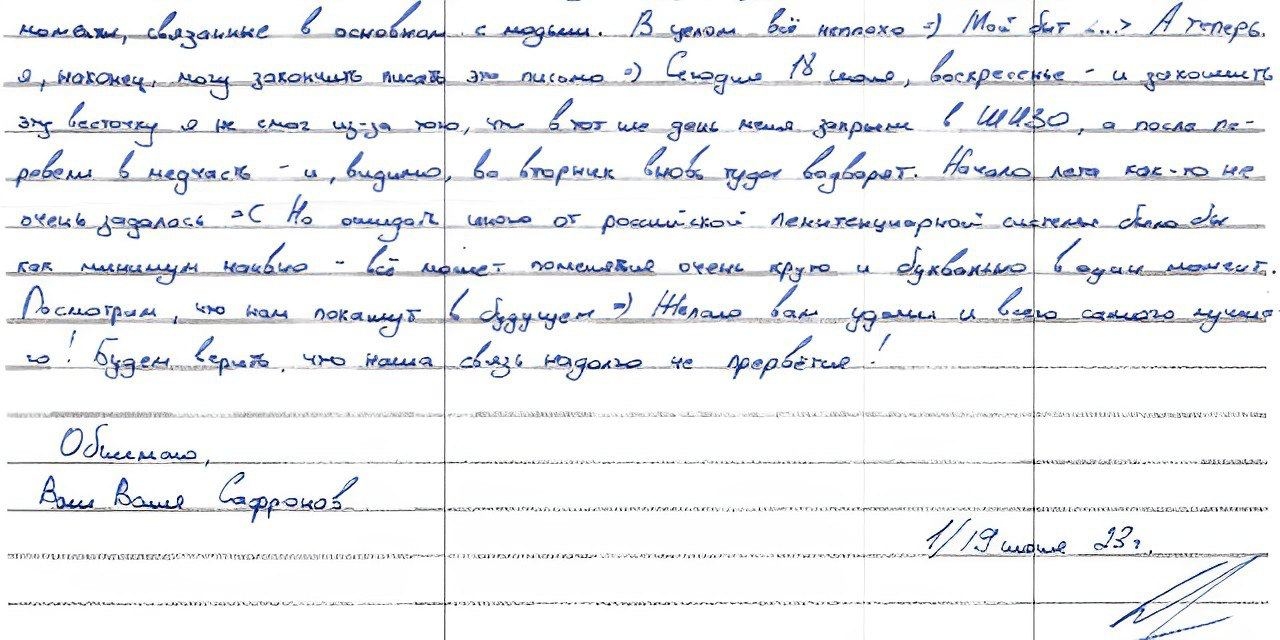 моменты, связанные в основном с людьми. В целом всё неплохо =) Мой быт <...> А теперь
я, наконец, могу закончить писать это письмо =) Сегодня 18 июня, воскресенье - и закончить
эту весточку я не смог из-за того, что в тот же день меня закрыли в ШИЗО, а после пе-
ревели в медчасть - и, видимо, во вторник вновь туда водворят. Начало лета как-то не
очень задалось =( Но ожидать иного от российской пенитенциарной системы было бы
как минимум наивно - всё может поменяться очень круто и буквально в один момент.
Посмотрим, что нам покажут в будущем =) Желаю вам удачи и всего самого лучше-
го! Будем верить, что наша связь надолго не прервётся!
Обнимаю,
Ваш Ваня Сафронов
1/19 июня 23 г.